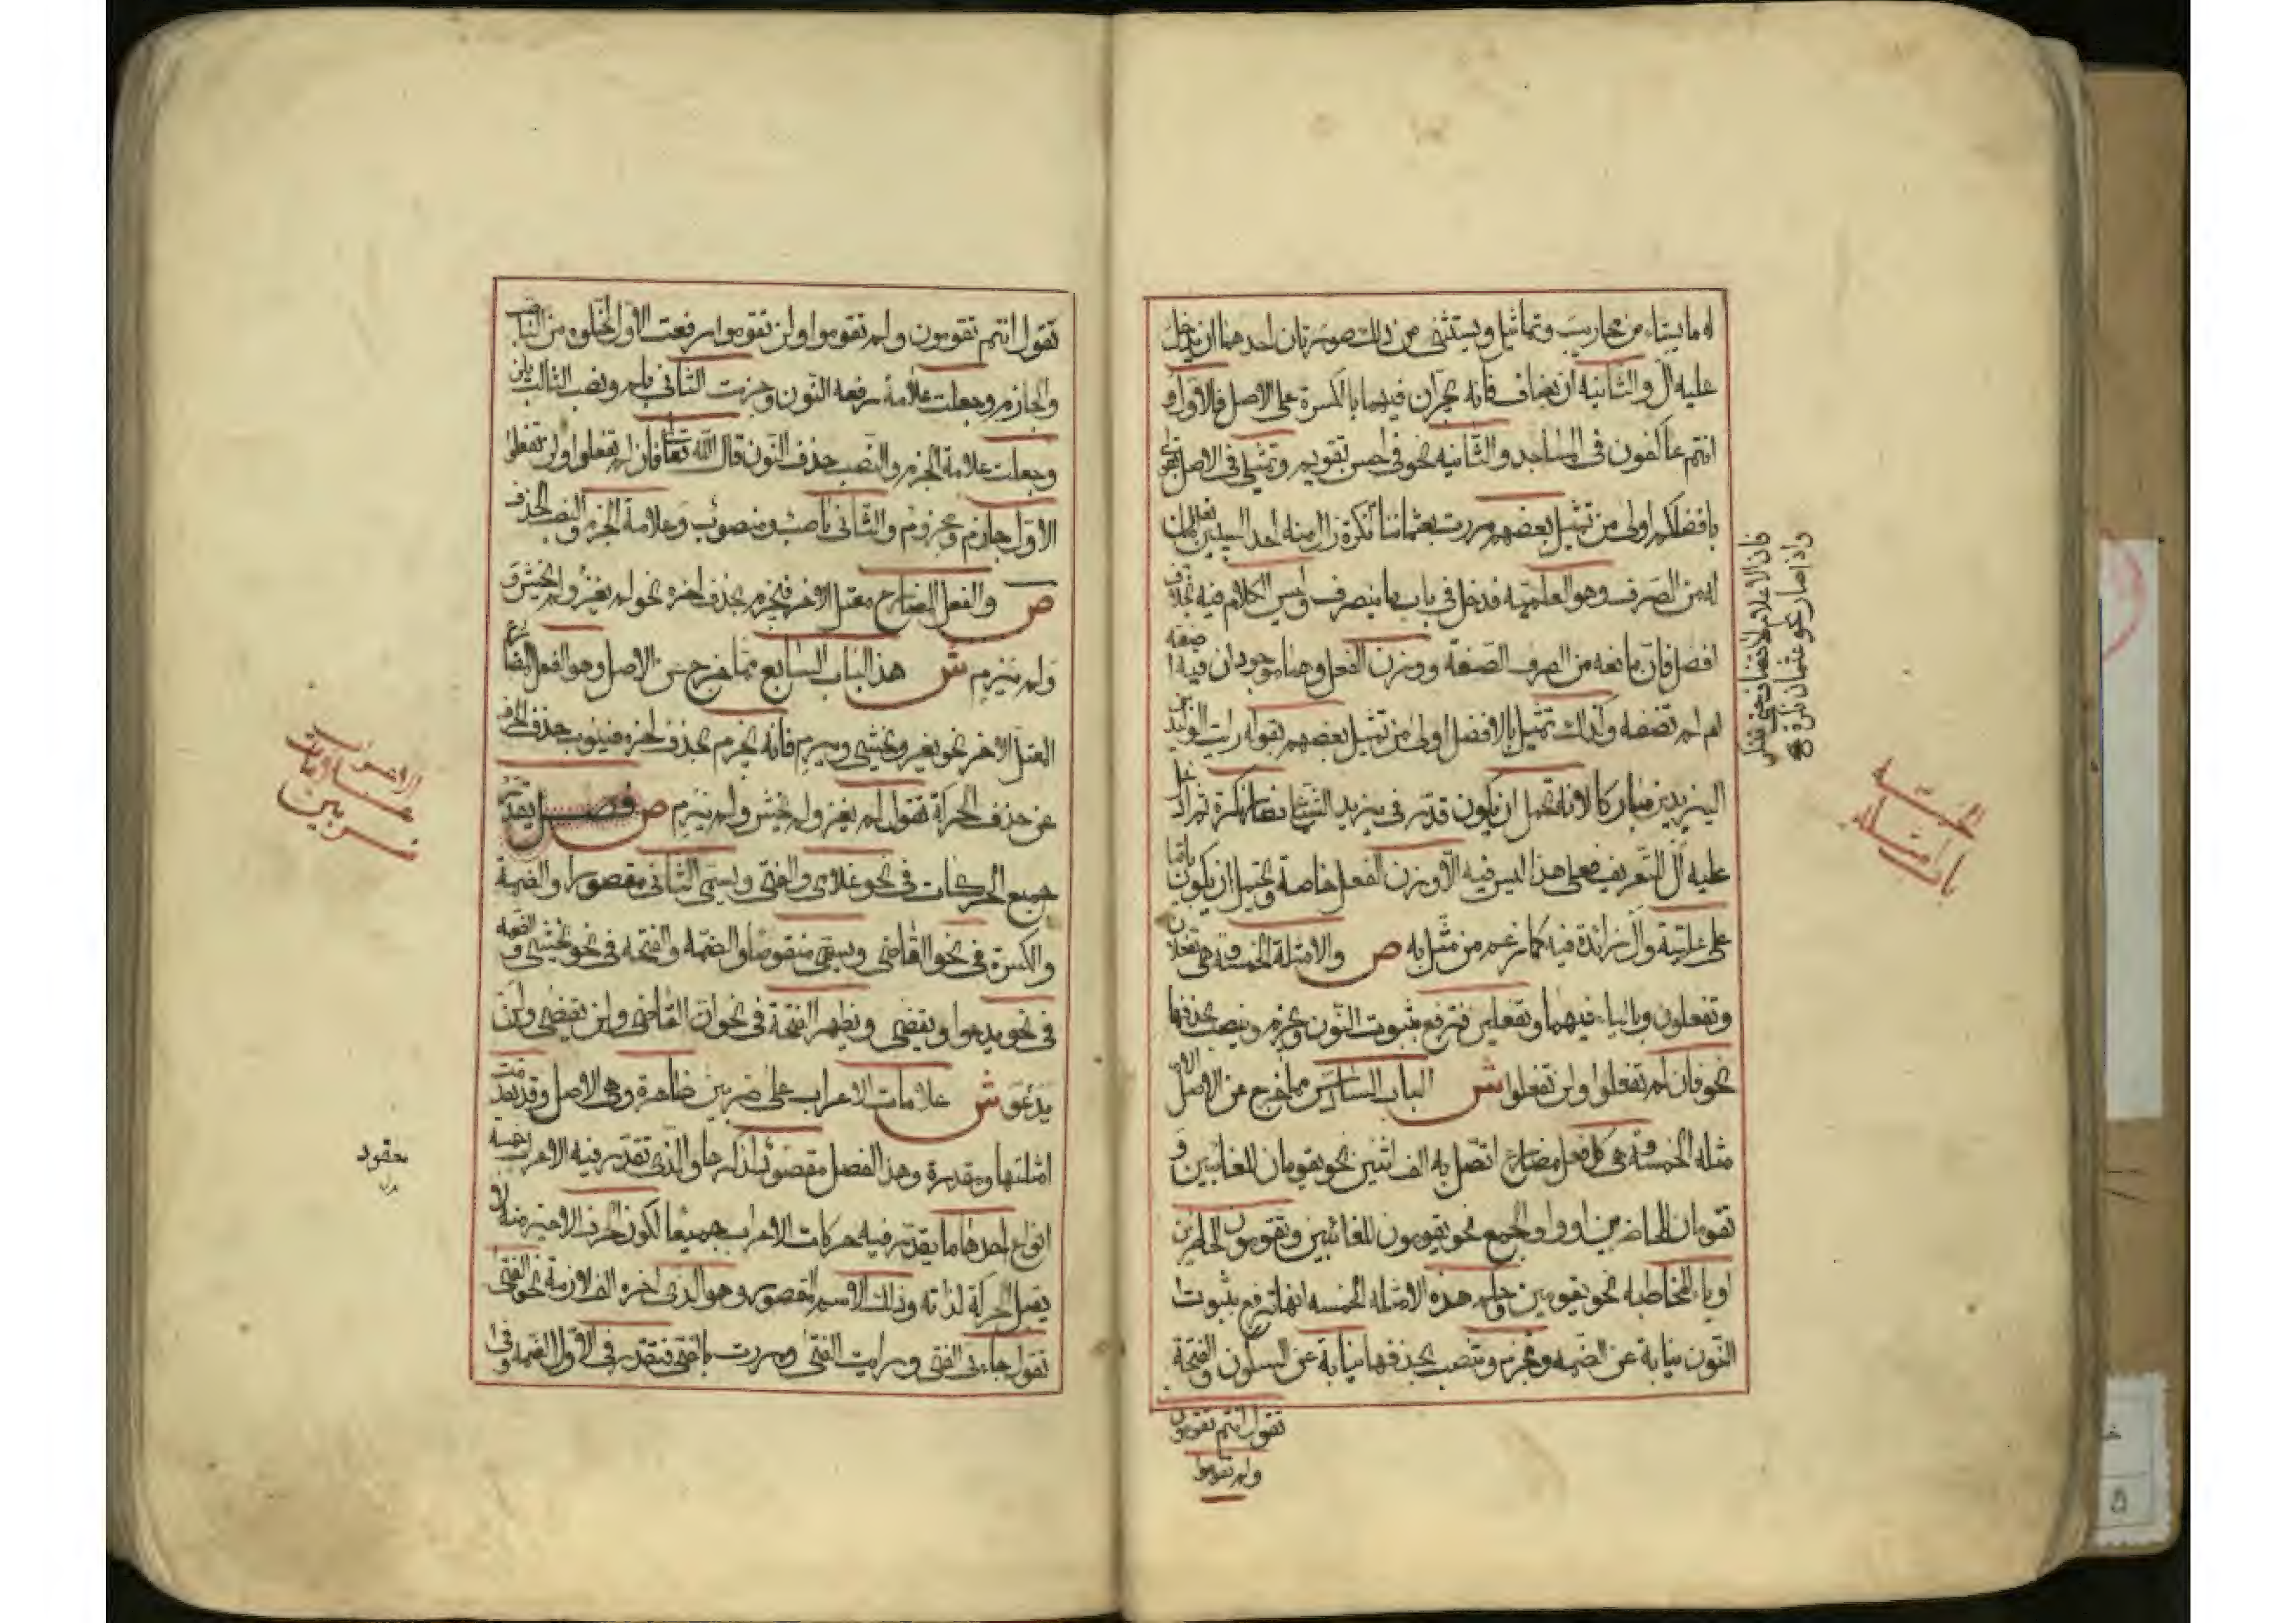 له ما يشاء من محاريب وتماثيل ويستثنى من ذلك صورتان احدهما ان يدخل
عليه ال والثانيه ان يضاف فانه يجران فيهما بالكسرة على الاصل فالاولى و
انتم عاكفون فى المساجد والثانيه نحو فى احسن تقويم وتمثيلى فى الاصل بقولى
بافضلكم اولى من تمثيل بعضهم مررت بعثماننا نكرة زال منه احد السببين المانعين
له من الصرف وهو العلميه فدخل فى باب ما ينصرف وليس الكلام فيه بخلاف
افضل فان مانعه من الصرف الصفة ووزن الفعل وهما موجودان فيه اضفته
ام لم تضفه وكذلك تمثيلى بالافضل اولى من تمثيل بعضهم بقوله رايت الوليد بن
اليزيد مباركا لانه يحتمل ان يكون قدر فى يزيد الشياع فصار نكرة ثم ادخل
عليه ال للتعريف فعلى هذا ليس فيه الا وزن الفعل خاصة ويحتمل ان يكون باقيا
على علميته وال زائدة فيه كما زعم من مثل به ص والامثلة الخمسة وهى تفعلان
وتفعلون وبالياء فيهما وتفعلين فترفع بثبوت النون وتجزم وتنصب بحذفها
نحو فان لم تفعلوا ولن تفعلوا ش الباب السادس مما خرج عن الاصل الا
مثله الخمسة وهى كل فعل مضارع اتصل به الف اثنين نحو يقومان للغائبين و
تقومان للحاضرين او واو الجمع نحو يقومون للغائبين وتقومون للحاضرين
او ياء المخاطبه نحو تقومين وحكم هذه الامثله الخمسه انها ترفع بثبوت
النون نيابة عن الضمه وتجزم وتنصب بحذفها نيابة عن السكون والفتحة
تقول انتم تقومون
ولم تقوموا
فان الاعلام لا تضاف حتى تنكر
واذا صار نحو عثمان نكرة
الخمسة
بامثله
تقول انتم تقومون ولم تقوموا ولن تقوموا رفعت الاول لخلوه من الناصب
والجازم وجعلت علامة رفعه النون وجزمت الثانى بلم ونصبت الثالث بلن
وجعلت علامة الجزم والنصب حذف النون قال الله تعالى فان لم تفعلوا ولن تفعلوا
الاول جازم ومجزوم والثانى ناصب ومنصوب وعلامة الجزم والنصب الحذف
ص والفعل المضارع معتل الاخر فيجزم بحذف اخره نحو لم يغز ولم يخش و
ولم يرم ش هذا الباب السابع مما خرج عن الاصل وهو الفعل المضارع
المعتل الاخر نحو يغزو ويخشى ويرمى فانه يجزم بحذف اخره فينوب حذف الحرف
عن حذف الحركة تقول لم يغز ولم يخش ولم يرم ص فصل يقدر
جميع الحركات فى نحو غلامى والفتى ويسمى الثانى مقصورا والضمة
والكسرة فى نحو القاضى ويسمى منقوصا والضمه والفتحه فى نحو يخشى والضمه
فى نحو يدعوا ويقضى وتظهر الفتحة فى نحو ان القاضى ولن يقضى ولن
يدعو ش علامات الاعراب على ضربين ظاهرة وهى الاصل وقد تقدمت
امثلتها ومقدرة وهذا الفصل مقصود لذكرها والذى تقدر فيه الاعراب خمسة
انواع احدها ما يقدر فيه حركات الاعراب جميعا لكون الحرف الاخر منه لا
يقبل الحركة لذاته وذلك الاسم المقصور وهو الذى اخره الف لازمة نحو الفتى
تقول جاءنى الفتى ورايت الفتى ومررت بالفتى فتقدر فى الاول الضمه وفى
الاعراب
علامات
ضربين
معقود
بدل